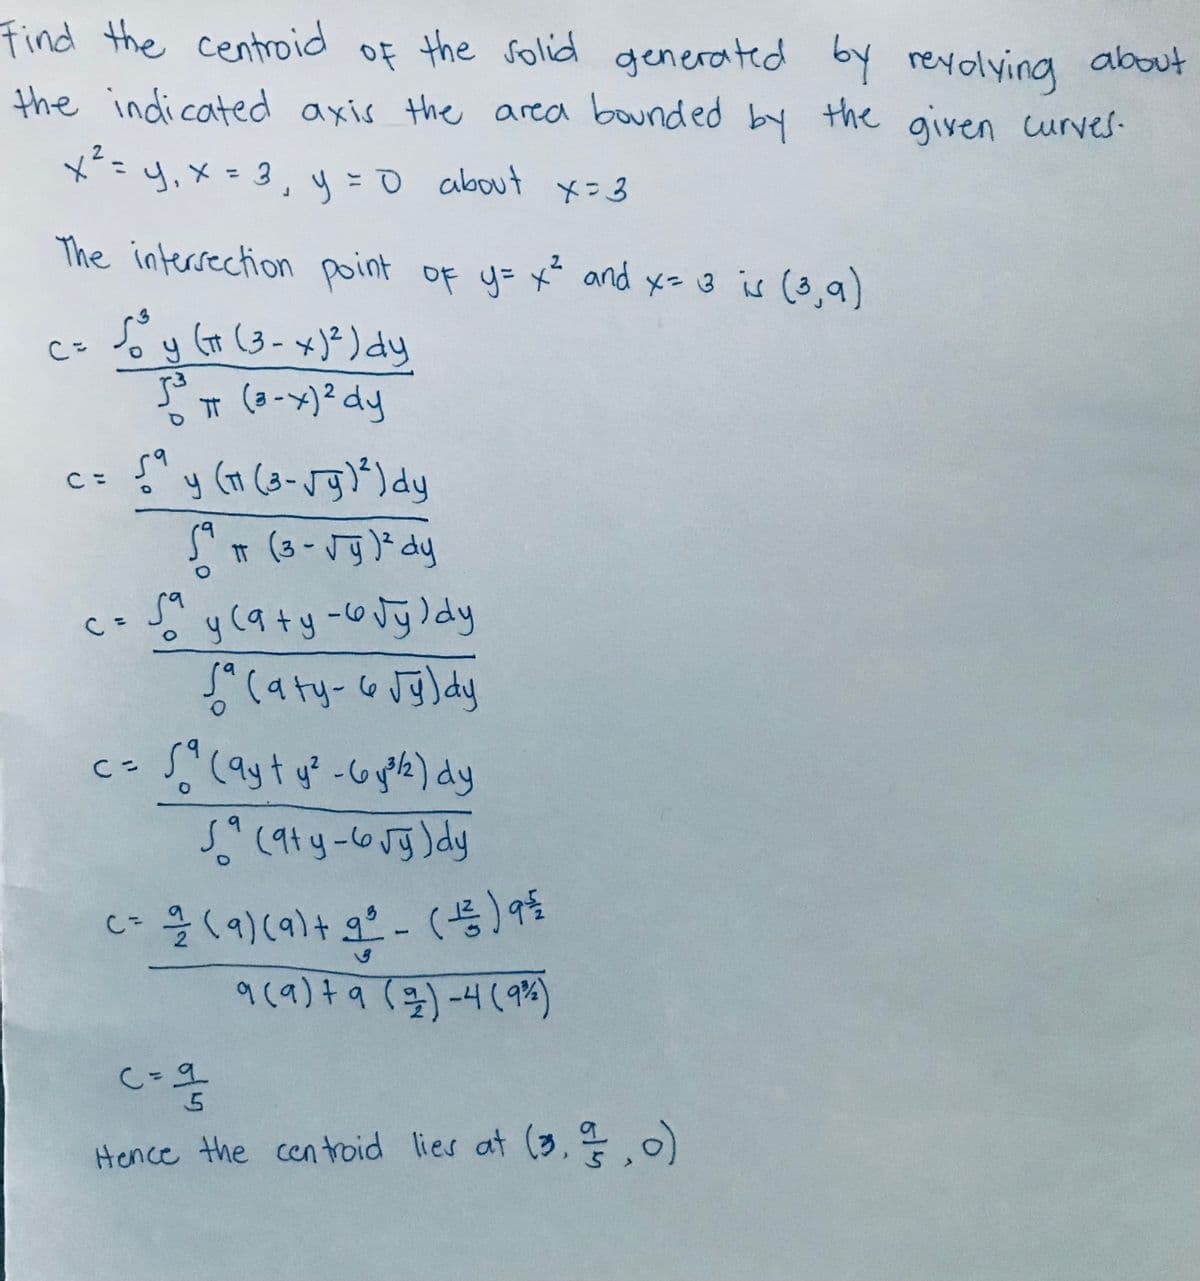 Find the centroid of the solid generated by revolving about
the indicated axis the area bounded by the given curves.
x² = y, x = 3, y = 0 about x = 3
The intersection point of y = x² and x = 3 is (3,9)
C = ∫₀³ y (π (3-x)²) dy
∫₀³ π (3-x)² dy
C = ∫₀⁹ y (π (3-√y)²) dy
∫₀⁹ π (3-√y)² dy
C = ∫₀⁹ y (9+y-6√y) dy
∫₀⁹ (9+y-6√y) dy
C = ∫₀⁹ (9y+y²-6y^3/2) dy
∫₀⁹ (9+y-6√y) dy
C = 9/2 (9)(9) + 9³/3 - (12/5) 9^5/2
9(9)+9(9/2)-4(9^3/2)
C = 9/5
Hence the centroid lies at (3, 9/5, 0)